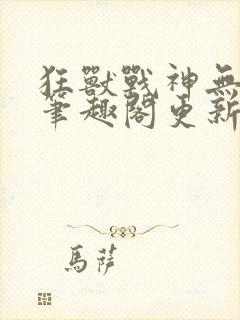 狂獸戰神無
筆趣閣更新
馬薩